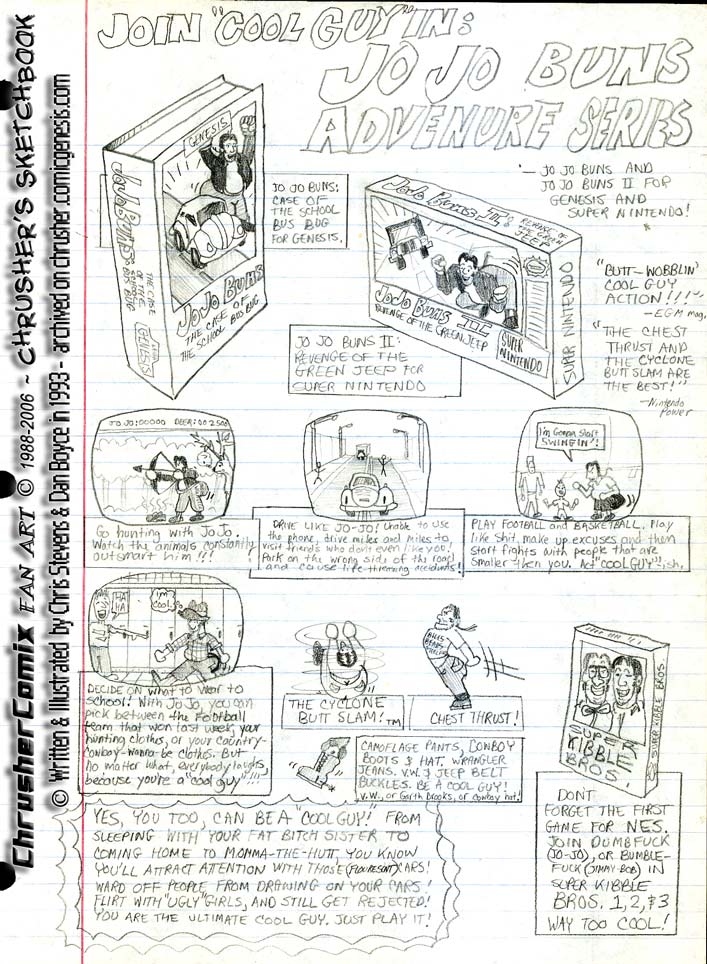 ChrusherComix FAN ART © 1988-2006 ~ CHRUSHER'S SKETCHBOOK
© Written & Illustrated by Chris Stevens & Dan Boyce in 1993 - archived on chrusher.comicgenesis.com
JOIN "COOL GUY" IN:
JO JO BUNS
ADVENURE SERIES
— JO JO BUNS AND
JO JO BUNS II FOR
GENESIS AND
SUPER NINTENDO!
GENESIS
JoJo BUNS
THE CASE OF THE SCHOOL BUS BUG
GENESIS
JoJo BUNS
THE CASE OF
THE SCHOOL BUS BUG
JO JO BUNS:
CASE OF
THE SCHOOL
BUS BUG
FOR GENESIS.
JoJo Buns II: REVENGE OF THE GREEN JEEP
JoJo BUNS II
REVENGE OF THE GREEN JEEP
SUPER
NINTENDO
SUPER NINTENDO
JO JO BUNS II:
REVENGE OF THE
GREEN JEEP FOR
SUPER NINTENDO
"BUTT-WOBBLIN'
COOL GUY
ACTION!!!"
—EGM mag.
"THE CHEST
THRUST AND
THE CYCLONE
BUTT SLAM ARE
THE BEST!"
—Nintendo
Power
JO JO:00000 DEER:002500
Go hunting with JoJo.
Watch the animals constantly
outsmart him!!!
DRIVE LIKE JO-JO! Unable to use
the phone, drive miles and miles to
visit friends who don't even like you,
Park on the wrong side of the road
and cause life-threatning accidents!
I'm Gonna Start
SWINGIN'!
PLAY FOOTBALL and BASKETBALL. Play
like shit, make up excuses and then
start fights with people that are
smaller then you. Act "COOL GUY"-ish.
HA
HA
I'm
COOL
DECIDE ON what to wear to
school! With JoJo, you can
pick between the Football
team that won last week, your
hunting clothes, or your country-
cowboy-wanna-be clothes. But
no matter what, everybody laughs,
because you're a "cool guy"!!!
THE CYCLONE
BUTT SLAM! TM
CHEST THRUST!
CAMOFLAGE PANTS, COWBOY
BOOTS & HAT. WRANGLER
JEANS. V.W. & JEEP BELT
BUCKLES. BE A COOL GUY!
V.W., or Garth Brooks, or cowboy hat!
SUPER
KIBBLE
BROS.
SUPER KIBBLE BROS.
DONT
FORGET THE FIRST
GAME FOR NES.
JOIN DUMBFUCK
(JO-JO), OR BUMBLE-
FUCK (JIMMY-BOB) IN
SUPER KIBBLE
BROS. 1, 2, & 3
WAY TOO COOL!
YES, YOU TOO, CAN BE A "COOL GUY!" FROM
SLEEPING WITH YOUR FAT BITCH SISTER TO
COMING HOME TO MOMMA-THE-HUTT, YOU KNOW
YOU'LL ATTRACT ATTENTION WITH THOSE (FLOURESANT) CARS!
WARD OFF PEOPLE FROM DRAWING ON YOUR CARS!
FLIRT WITH "UGLY" GIRLS, AND STILL GET REJECTED!
YOU ARE THE ULTIMATE COOL GUY. JUST PLAY IT!